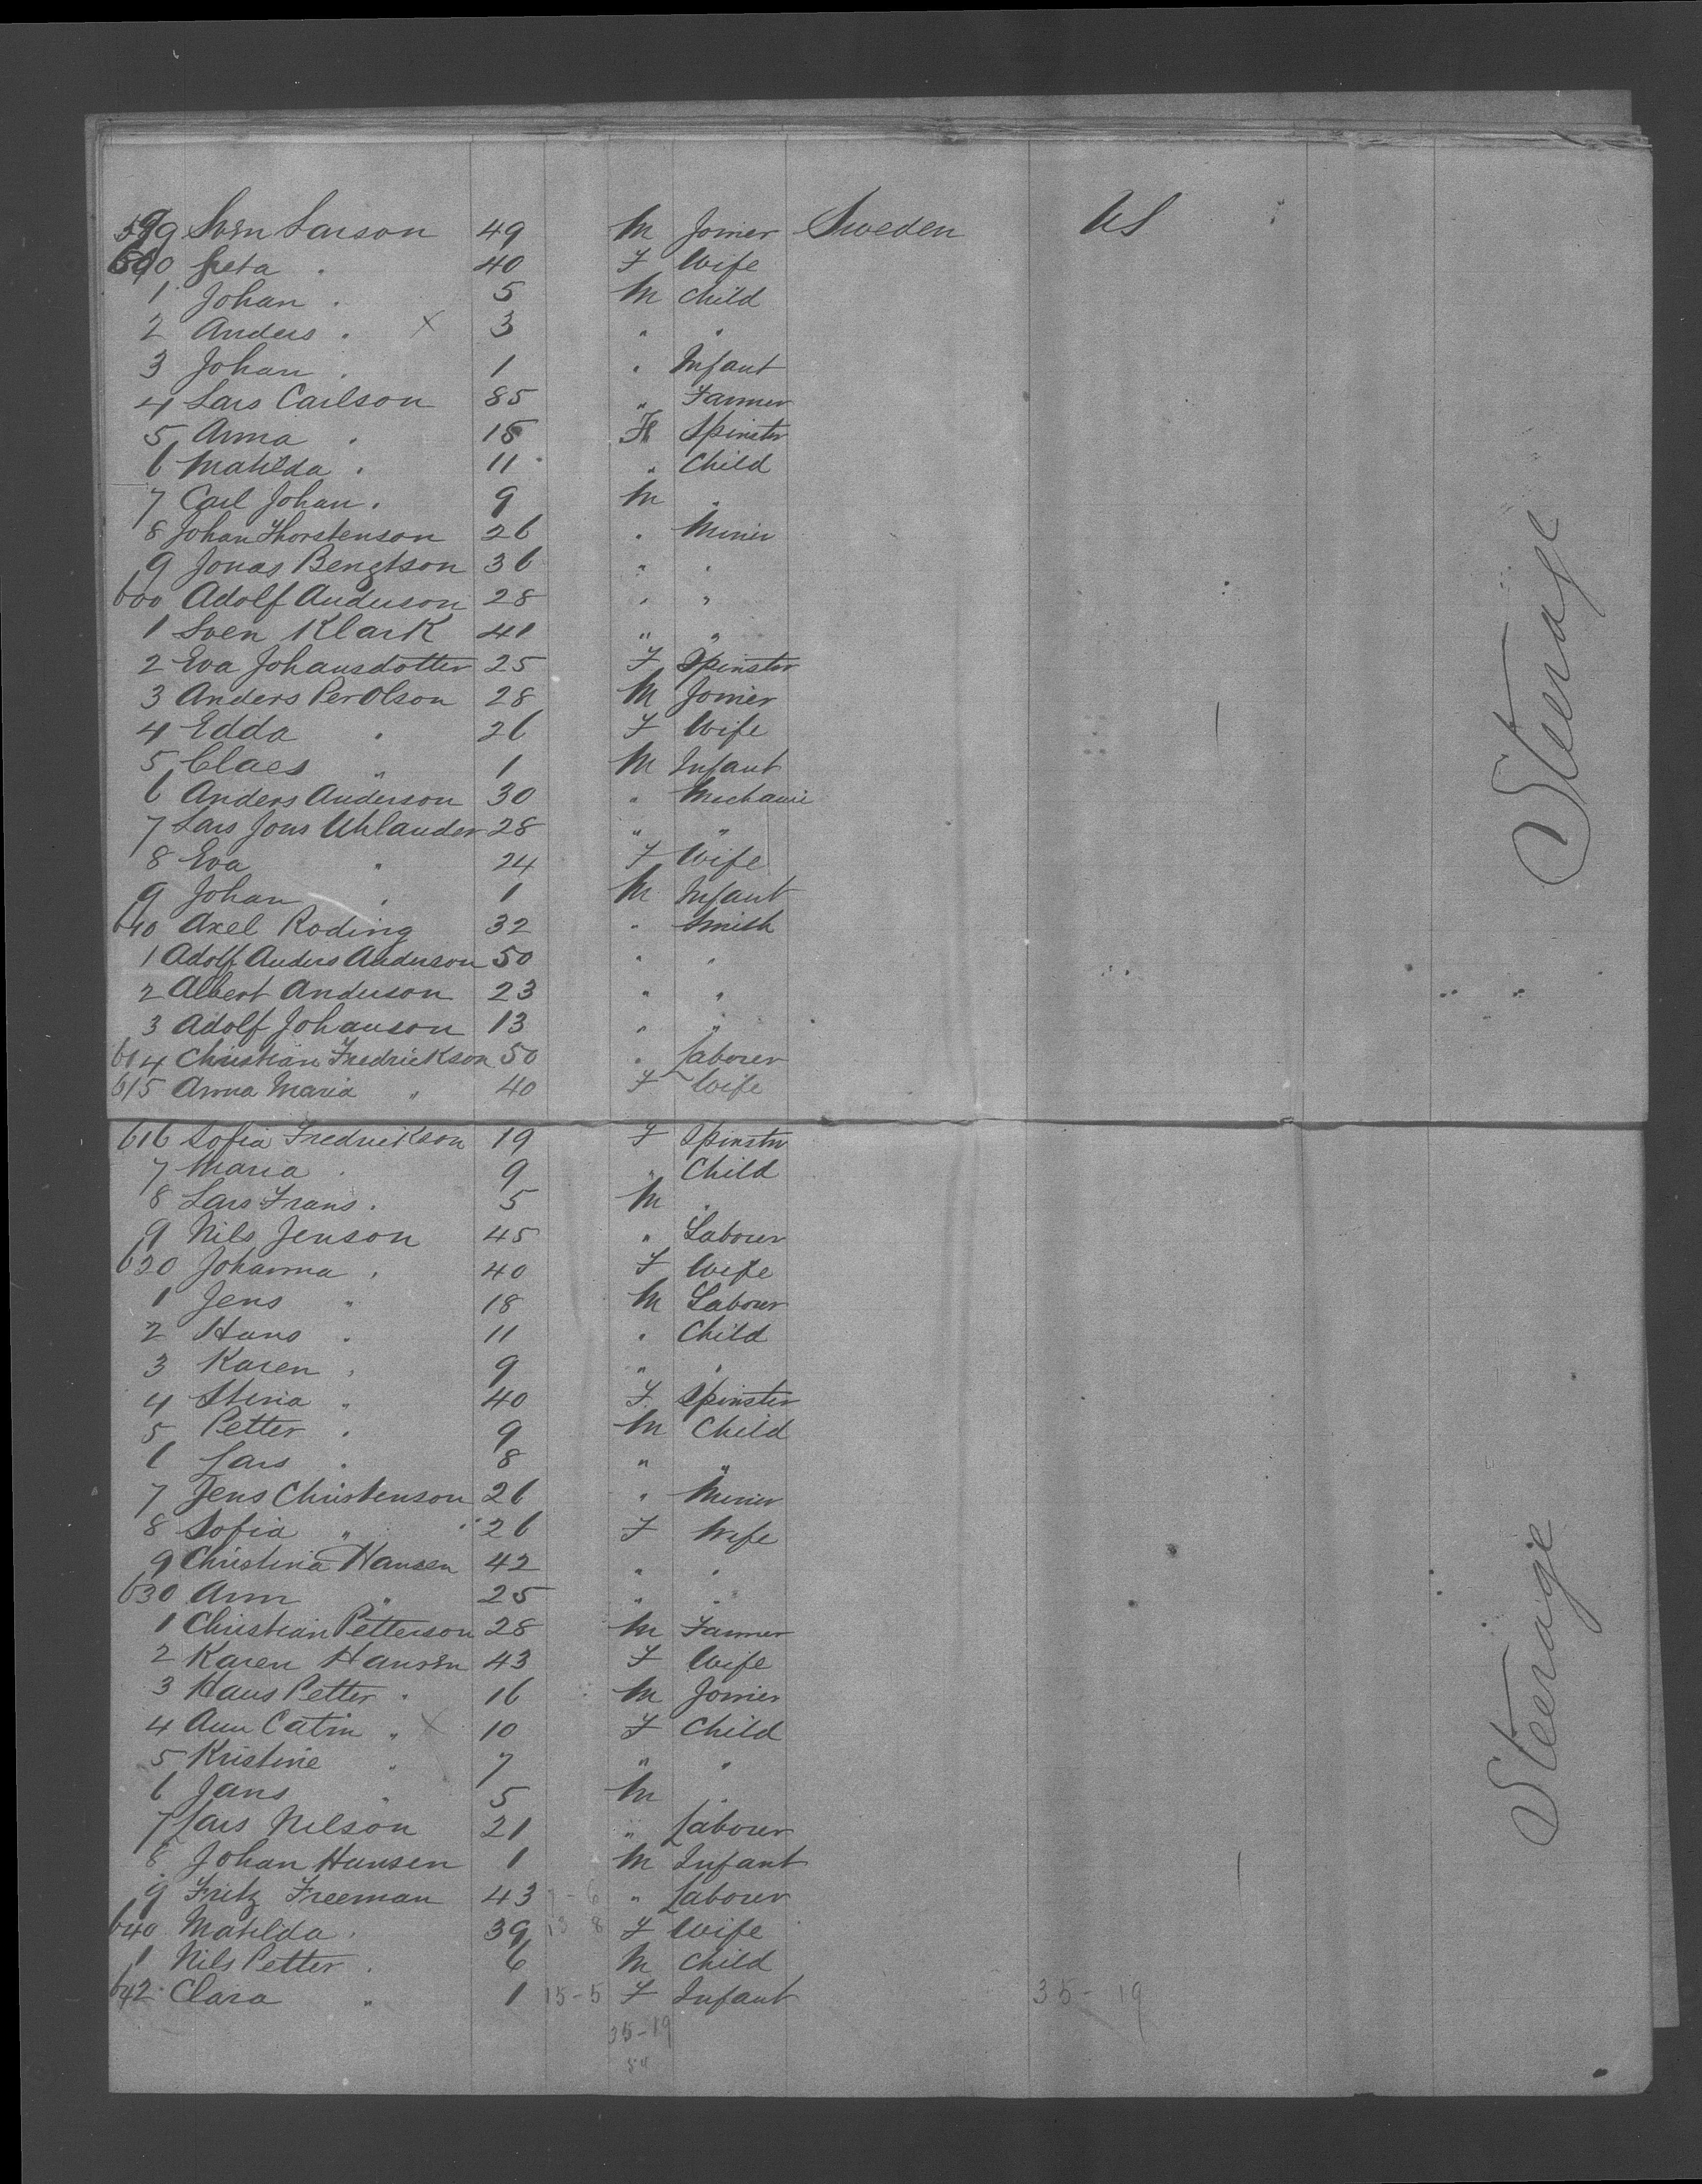 589 Sven Larson 49 M Joiner Sweden US
590 Greta " 40 F Wife
1 Johan " 5 M Child
2 Anders " X 3 " "
3 Johan " 1 " Infant
4 Lars Carlson 85 " Farmer
5 Anna " 15 F Spinster
6 Matilda " 11 " Child
7 Carl Johan " 9 M "
8 Johan Thorstenson 26 " Miner
9 Jonas Bengtson 36 " "
600 Adolf Anderson 28 " "
1 Sven Klark 41 " "
2 Eva Johansdotter 25 F Spinster
3 Anders Per Olson 28 M Joiner
4 Edda " 26 F Wife
5 Claes " 1 M Infant
6 Anders Anderson 30 " Mechanic
7 Lars Jons Uhlander 28 " "
8 Eva " 24 F Wife
9 Johan " 1 M Infant
610 Axel Roding 32 " Smith
1 Adolf Anders Anderson 50 " "
2 Albert Anderson 23 " "
3 Adolf Johanson 13 " "
614 Christian Fredrickson 50 " Labourer
615 Anna Maria " 40 F Wife
616 Sofia Fredrickson 19 F Spinster
7 Maria " 9 " Child
8 Lars Frans " 5 M "
9 Nils Jenson 45 " Labourer
620 Johanna " 40 F Wife
1 Jens " 18 M Labour
2 Hans " 11 " Child
3 Karen " 9 " "
4 Stina " 40 F Spinster
5 Petter " 9 M Child
6 Lars " 8 " "
7 Jens Christenson 26 " Miner
8 Sofia " 26 F Wife
9 Christina Hansen 42 " "
630 Ann " 25 " "
1 Christian Petterson 28 M Farmer
2 Karen Hansen 43 F Wife
3 Hans Petter " 16 M Joiner
4 Ann Catrin " X 10 F Child
5 Kristine " 7 " "
6 Jans " 5 M "
7 Lars Nilson 21 " Labourer
8 Johan Hansen 1 M Infant
9 Fritz Freeman 43 " Labourer
640 Matilda " 39 13 8 F Wife
1 Nils Petter " 6 M Child
642 Clara " 1 15-5 F Infant 35-19
35-19
54
Steerage
Steerage